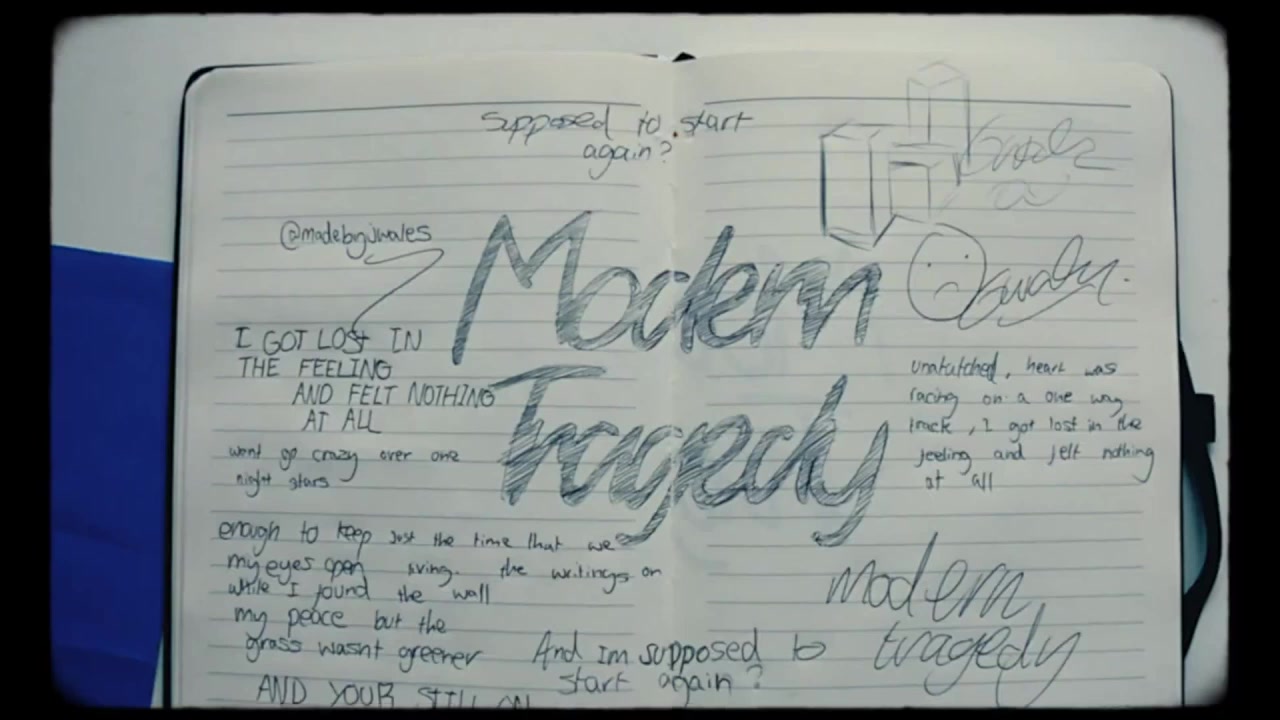 Supposed to start
again?
@madebyjwales
Modern
Tragedy
I GOT LOST IN
THE FEELING
AND FELT NOTHING
AT All
went go crazy over one
night stars
enough to keep
my eyes open
while I found
my peace but the
grass wasnt greener
AND YOUR STILL ON
Just the time that we
living. the writings on
the wall
And Im supposed to
start again?
heart was
racing on a one way
track, I got lost in the
feeling and felt nothing
at all
modern
tragedy